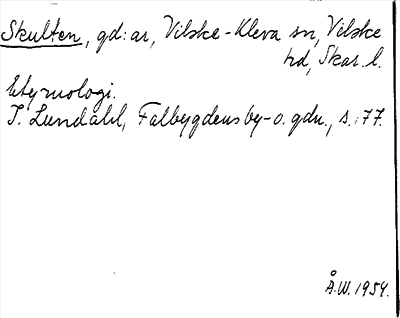 Skulten, gd: ar, Vilske-Kleva sn, Vilske
hd, Skar. l.
Etymologi.
I. Lundahl, Falbygdens by- o. gdn., s. 77.
Å.W. 1954.